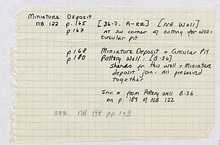 Miniature Deposit
NB 122 p. 165 [36-7. A-RE] [NE Wall]
p 167 at SW corner of cutting for well + circular pit
p 168 Miniature Deposit + Circular Pit
p 180 Pottery Wall: [B-36]
sherds in this wall + miniature
deposit join. All pressed
together
Inv. # from Pottery wall B-36
on p. 189 of NB 122
see NB 198 pp 1-3